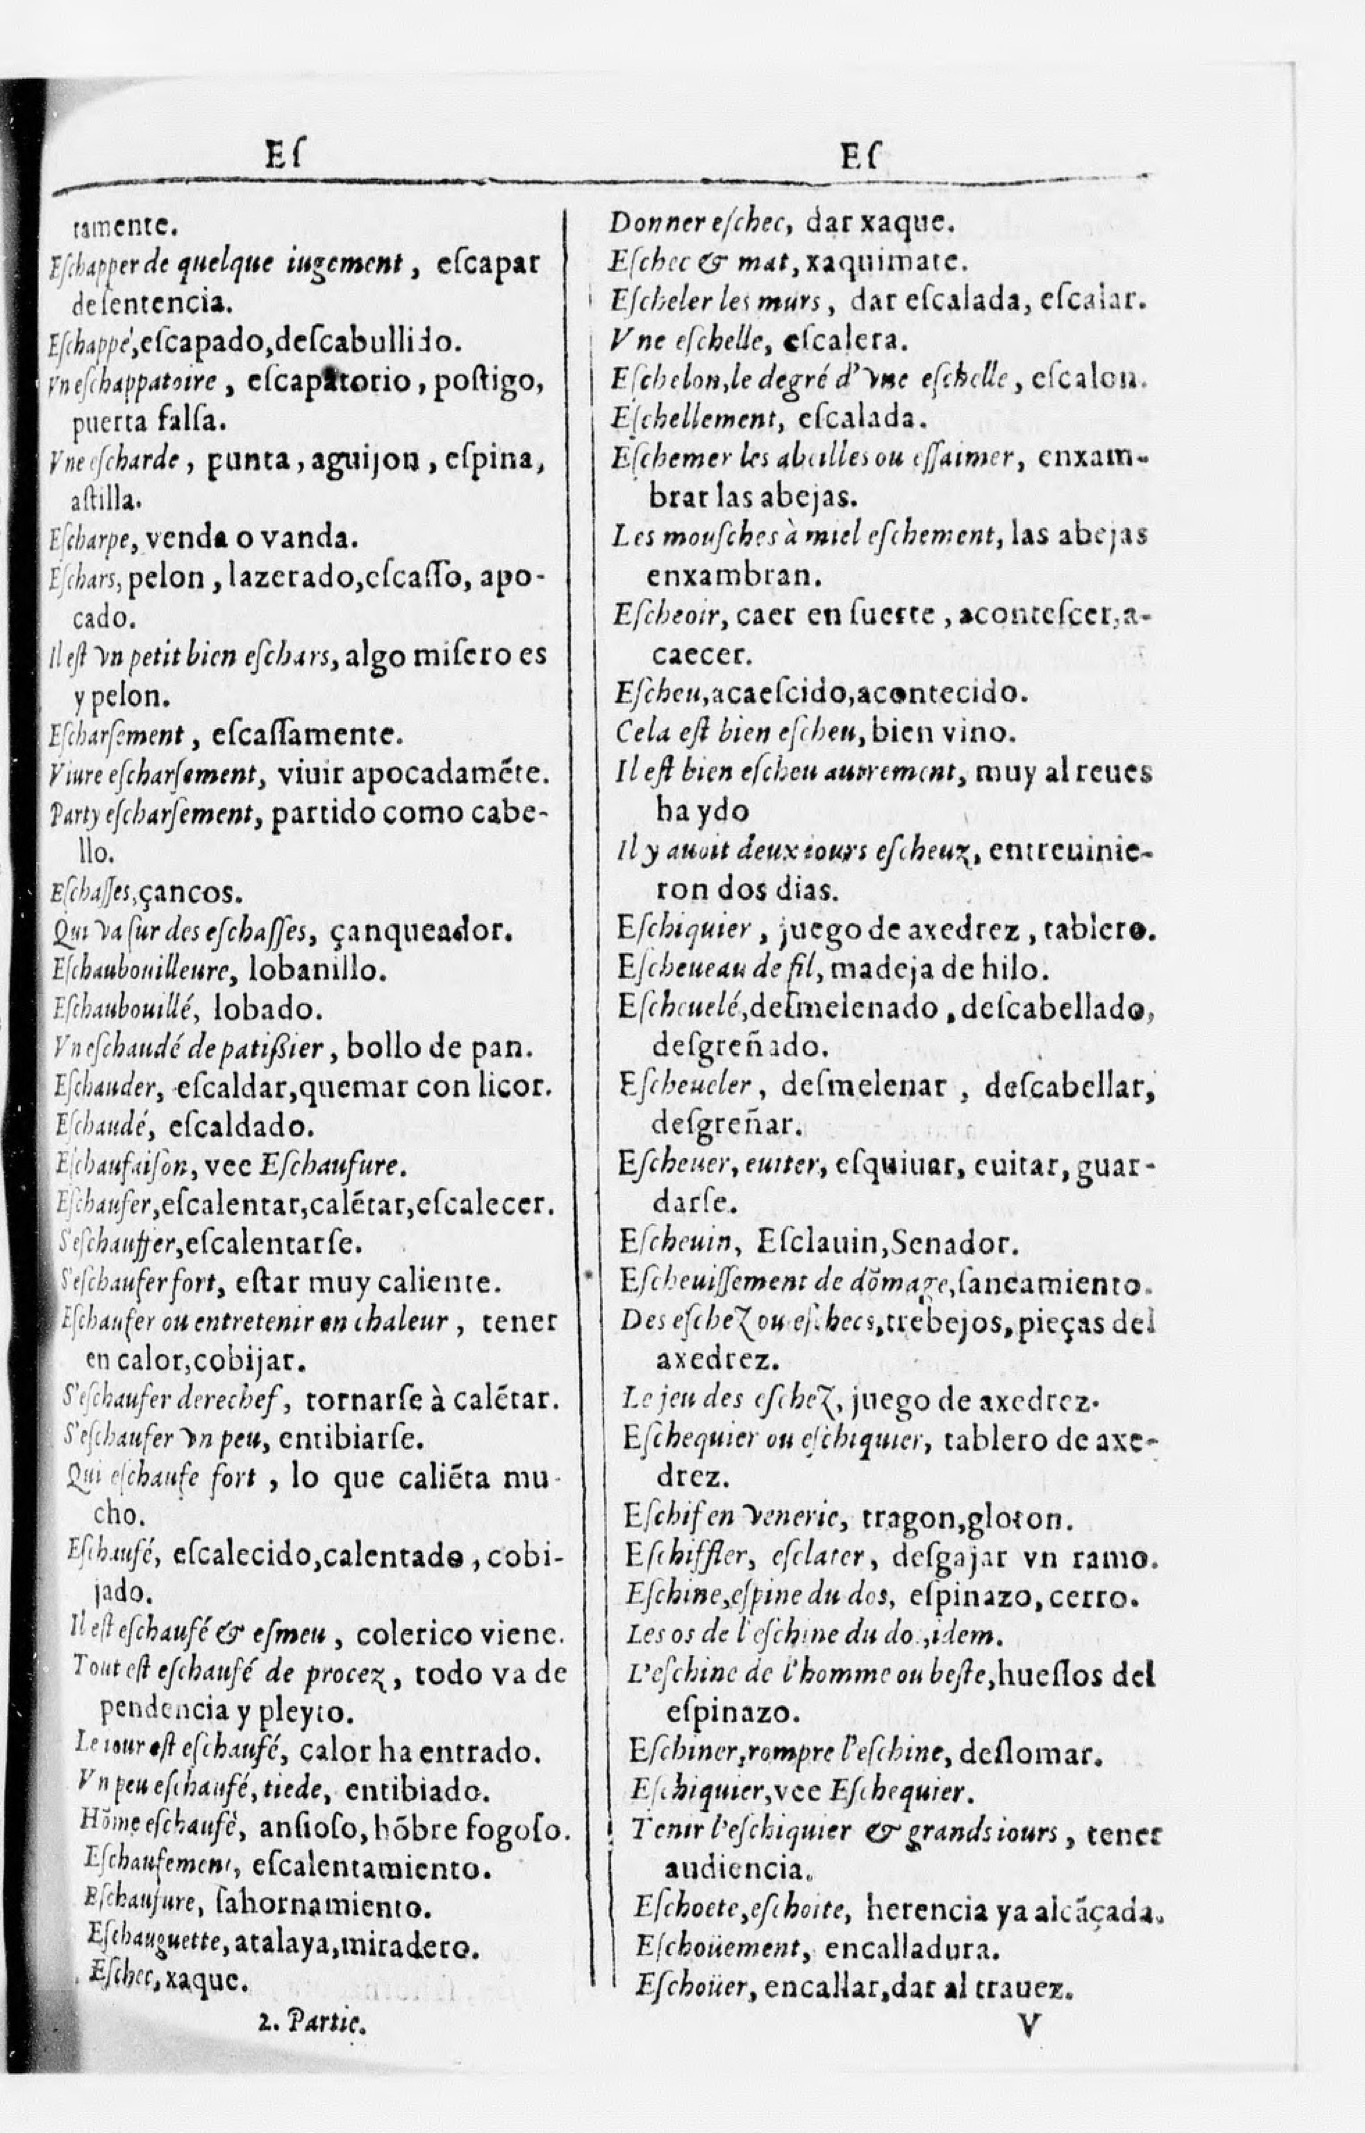 Eſ
tamente.
Eſchapper de quelque iugement, eſcapar
de ſentencia.
Eſchappé, eſcapado, deſcabullido.
Vn eſchappatoire, eſcapatorio, poſtigo,
puerta falſa.
Vne eſcharde, punta, aguijon, eſpina,
aſtilla.
Eſcharpe, venda o vanda.
Eſchars, pelon, lazerado, eſcaſſo, apo-
cado.
Il eſt vn petit bien eſchars, algo miſero es
y pelon.
Eſcharſement, eſcaſſamente.
Viure eſcharſement, viuir apocadamẽte.
Party eſcharſement, partido como cabe-
llo.
Eſchaſſes, çancos.
Qui va ſur des eſchaſſes, çanqueador.
Eſchaubouilleure, lobanillo.
Eſchaubouillé, lobado.
Vn eſchaudé de patißier, bollo de pan.
Eſchauder, eſcaldar, quemar con licor.
Eſchaudé, eſcaldado.
Eſchaufaiſon, vee Eſchaufure.
Eſchaufer, eſcalentar, calẽtar, eſcalecer.
S'eſchauffer, eſcalentarſe.
S'eſchaufer fort, eſtar muy caliente.
Eſchaufer ou entretenir en chaleur, tener
en calor, cobijar.
S'eſchaufer derechef, tornarſe à calẽtar.
S'eſchaufer vn peu, entibiarſe.
Qui eſchaufe fort, lo que caliẽta mu-
cho.
Eſchaufé, eſcalecido, calentado, cobi-
jado.
Il eſt eſchaufé & eſmeu, colerico viene.
Tout eſt eſchaufé de procez, todo va de
pendencia y pleyto.
Le iour eſt eſchaufé, calor ha entrado.
Vn peu eſchaufé, tiede, entibiado.
Hõme eſchaufé, anſioſo, hõbre fogoſo.
Eſchaufement, eſcalentamiento.
Eſchaufure, ſahornamiento.
Eſchauguette, atalaya, miradero.
Eſchec, xaque.
2. Partie.
Eſ
Donner eſchec, dar xaque.
Eſchec & mat, xaquimate.
Eſcheler les murs, dar eſcalada, eſcalar.
Vne eſchelle, eſcalera.
Eſchelon, le degré d'vne eſchelle, eſcalon.
Eſchellement, eſcalada.
Eſchemer les abeilles ou eſſaimer, enxam-
brar las abejas.
Les mouſches à miel eſchement, las abejas
enxambran.
Eſcheoir, caer en ſuerte, aconteſcer, a-
caecer.
Eſcheu, acaeſcido, acontecido.
Cela eſt bien eſcheu, bien vino.
Il eſt bien eſcheu autrement, muy al reues
ha ydo
Il y auoit deux iours eſcheuz, entreuinie-
ron dos dias.
Eſchiquier, juego de axedrez, tablero.
Eſcheueau de fil, madeja de hilo.
Eſcheuelé, deſmelenado, deſcabellado,
deſgreñado.
Eſcheueler, deſmelenar, deſcabellar,
deſgreñar.
Eſcheuer, euiter, eſquiuar, euitar, guar-
darſe.
Eſcheuin, Eſclauin, Senador.
Eſcheuiſſement de dõmage, ſaneamiento.
Des eſchez ou eſchecs, trebejos, pieças del
axedrez.
Le jeu des eſchez, juego de axedrez.
Eſchequier ou eſchiquier, tablero de axe-
drez.
Eſchif en venerie, tragon, gloton.
Eſchiffler, eſclater, deſgajar vn ramo.
Eſchine, eſpine du dos, eſpinazo, cerro.
Les os de l'eſchine du do, idem.
L'eſchine de l'homme ou beſte, hueſſos del
eſpinazo.
Eſchiner, rompre l'eſchine, deſlomar.
Eſchiquier, vee Eſchequier.
Tenir l'eſchiquier & grands iours, tener
audiencia.
Eſchoete, eſchoite, herencia ya alcãçada.
Eſchoüement, encalladura.
Eſchoüer, encallar, dar al trauez.
V